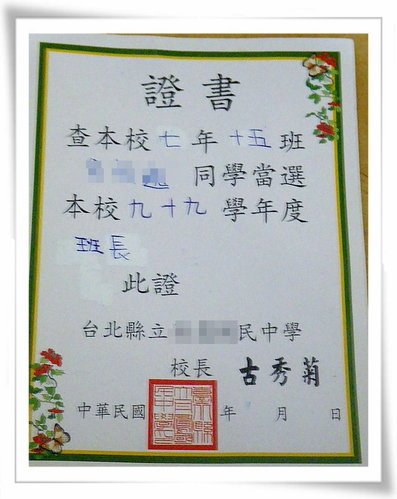 證書
查本校七年十五班
同學當選
本校九十九學年度
班長
此證
台北縣立民中學
校長 古秀菊
中華民國 年 月 日